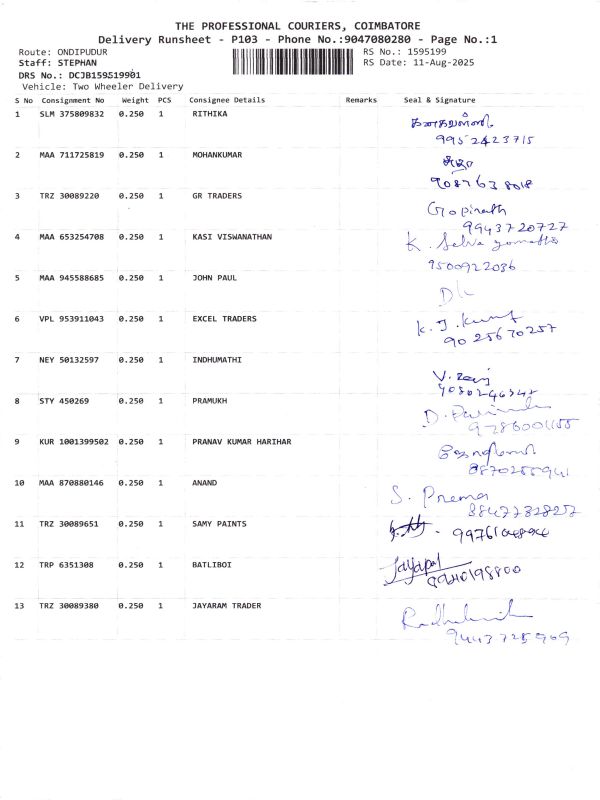 THE PROFESSIONAL COURIERS, COIMBATORE
Delivery Runsheet - P103 - Phone No.:9047080280 - Page No.:1
Route: ONDIPUDUR
RS No.: 1595199
Staff: STEPHAN
RS Date: 11-Aug-2025
DRS No.: DCJB159519901
Vehicle: Two Wheeler Delivery
S No Consignment No Weight PCS Consignee Details Remarks Seal & Signature
1 SLM 375809832 0.250 1 RITHIKA
9952423715
2 MAA 711725819 0.250 1 MOHANKUMAR
9087638018
3 TRZ 30089220 0.250 1 GR TRADERS Gopinath
9943720727
4 MAA 653254708 0.250 1 KASI VISWANATHAN K. Selva
9500922036
5 MAA 945588685 0.250 1 JOHN PAUL
6 VPL 953911043 0.250 1 EXCEL TRADERS
9025670257
7 NEY 50132597 0.250 1 INDHUMATHI
8 STY 450269 0.250 1 PRAMUKH
9 KUR 1001399502 0.250 1 PRANAV KUMAR HARIHAR
10 MAA 870880146 0.250 1 ANAND S. Prema
11 TRZ 30089651 0.250 1 SAMY PAINTS
12 TRP 6351308 0.250 1 BATLIBOI Jayapal
13 TRZ 30089380 0.250 1 JAYARAM TRADER